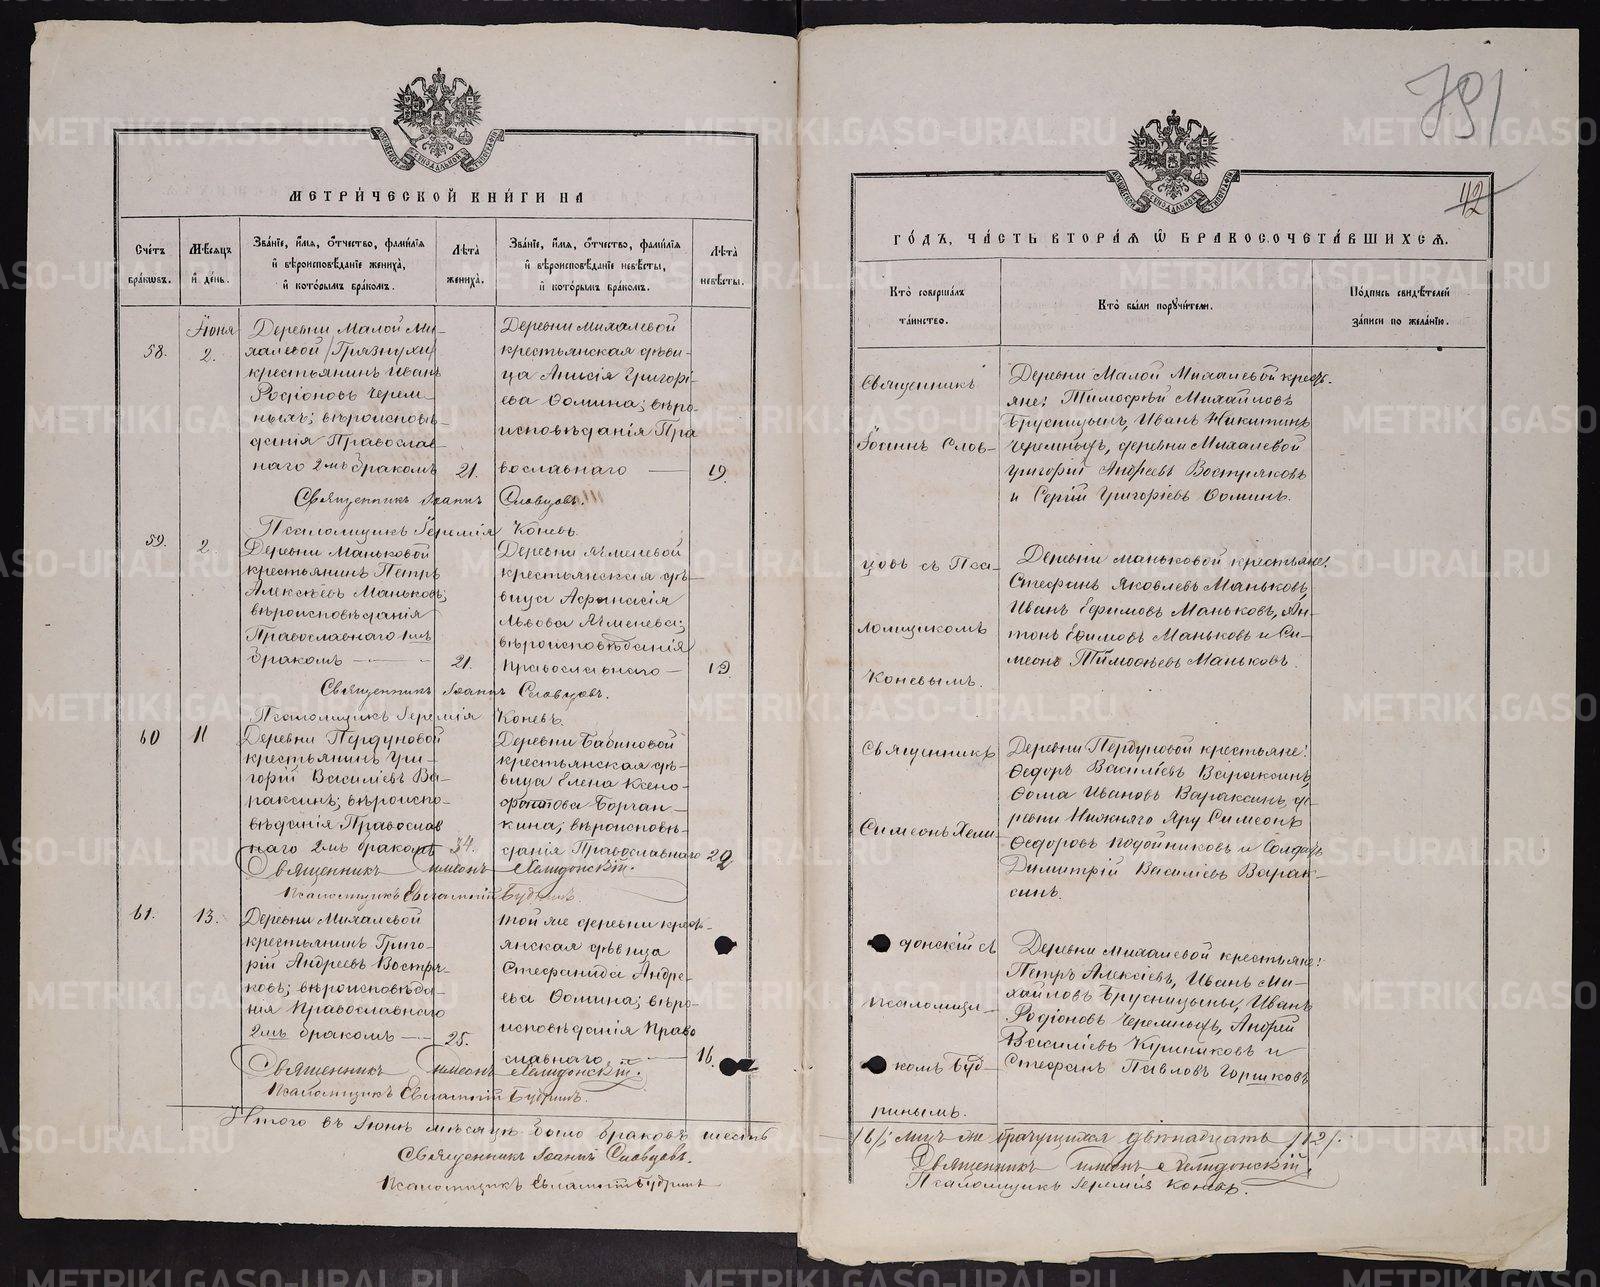 МЕТРИЧЕСКОЙ КНИГИ НА
Счетъ браковъ.
Мѣсяцъ и день.
Званіе, имя, отчество, фамилія и вѣроисповѣданіе жениха, и которымъ бракомъ.
Лѣта жениха.
Званіе, имя, отчество, фамилія и вѣроисповѣданіе невѣсты, и которымъ бракомъ.
Лѣта невѣсты.
58.
Іюня
2.
Деревни Малой Ми-
халевой /Грязнухи/
крестьянинъ Иванъ
Родіоновъ Черем-
ныхъ; вѣроисповѣ-
данія Православ-
наго 2мъ бракомъ
21.
Деревни Михалевой
крестьянская дѣви-
ца Анисія Григорі-
ева Ѳомина; вѣро-
исповѣданія Пра
вославнаго
19.
Священникъ Іоаннъ Словцовъ.
Псаломщикъ Іеремія Коневъ.
59.
2.
Деревни Маньковой
крестьянинъ Петръ
Алексѣевъ Маньковъ;
вѣроисповѣданія
Православнаго 1мъ
бракомъ
21.
Деревни Ячменевой
крестьянская дѣ-
вица Афанасія
Львова Ячменева;
вѣроисповѣданія
Православнаго
19.
Священникъ Іоаннъ Словцовъ.
Псаломщикъ Іеремія Коневъ.
60
11
Деревни Пердуновой
крестьянинъ Гри-
горій Василіевъ Ва-
раксинъ; вѣроиспо-
вѣданія Православ
наго 2мъ бракомъ
34.
Деревни Бабиновой
крестьянская дѣ-
вица Елена Ксено-
фонтова Борчан-
кина; вѣроисповѣ-
данія Православнаго
22
Священникъ Симеонъ Хелидонскій.
Псаломщикъ Евлампій Будринъ.
61.
13.
Деревни Михалевой
крестьянинъ Григо-
рій Андреевъ Востря-
ковъ; вѣроисповѣда-
нія Православнаго
2мъ бракомъ
25.
той же деревни крест-
янская дѣвица
Стефанида Андре-
ева Ѳомина; вѣро-
исповѣданія Право
славнаго.
16.
Священникъ Симеонъ Хелидонскій.
Псаломщикъ Евлампій Будринъ.
Итого въ Іюнѣ мѣсяцѣ было браковъ шесть
Священникъ Іоаннъ Словцовъ.
Псаломщикъ Евлампій Будринъ
781
42
ГОДЪ, ЧАСТЬ ВТОРАЯ Ѡ БРАКОСОЧЕТАВШИХСЯ.
Кто совершалъ таинство.
Кто были поручители.
Подпись свидѣтелей записи по желанію.
Священникъ
Іоаннъ Слов-
цовъ съ Пса-
ломщикомъ
Коневымъ.
Деревни Малой Михалевой крест-
яне: Тимофѣй Михайловъ
Брусницынъ, Иванъ Никитинъ
Черемныхъ, деревни Михалевой
Григорій Андреевъ Востряковъ
и Сергій Григоріевъ Ѳоминъ.
Деревни Маньковой крестьяне:
Стефанъ Яковлевъ Маньковъ,
Иванъ Ефимовъ Маньковъ, Ан-
тонъ Ефимовъ Маньковъ и Си-
меонъ Тимофѣевъ Маньковъ.
Священникъ
Симеонъ Хели-
донскій съ
псаломщи-
комъ Буд-
ринымъ.
Деревни Пердуновой крестьяне:
Ѳедоръ Василіевъ Вараксинъ,
Ѳома Ивановъ Вараксинъ, де-
ревни Нижняго Яру Симеонъ
Ѳедоровъ Подойниковъ и Солдатъ
Димитрій Василіевъ Варак-
синъ.
Деревни Михалевой крестьяне:
Петръ Алексіевъ, Иванъ Ми-
хайловъ Брусницыны, Иванъ
Родіоновъ Черемныхъ, Андрей
Василіевъ Кириниковъ и
Стефанъ Павловъ Горшковъ
/6/; лицъ же брачущихся двѣнадцать /12/.
Священникъ Симеонъ Хелидонскій.
Псаломщикъ Іеремія Коневъ.
METRIKI.GASO-URAL.RU